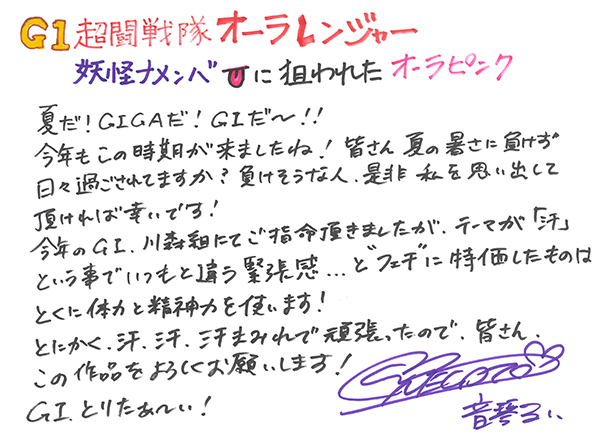 G1 超闘戦隊オーラレンジャー
妖怪ナメンバーに狙われたオーラピンク
夏だ!GIGAだ!GIだ〜!!
今年もこの時期が来ましたね!皆さん夏の暑さに負けず
日々過ごされてますか?負けそうな人、是非私を思い出して
頂ければ幸いです!
今年のGI、川森組にてご指命頂きましたが、テーマが「汗」
という事でいつもと違う緊張感...ど"フェチ"に特価したものは
とくに体力と精神力を使います!
とにかく、汗、汗、汗まみれで頑張ったので、皆さん、
この作品をよろしくお願いします!
GI、とりたぁ〜い!
音琴るい